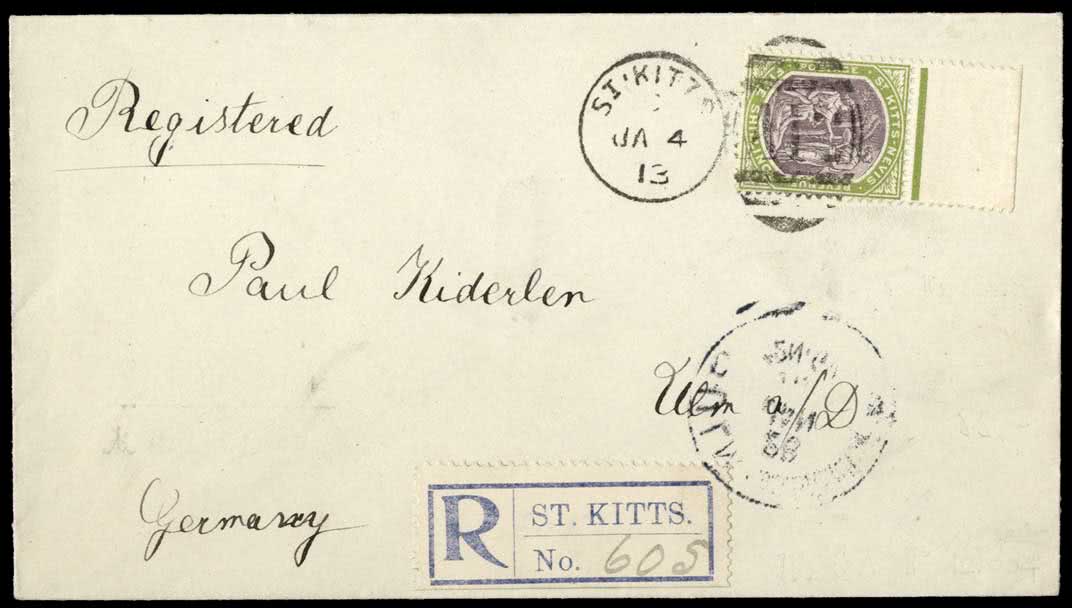 Registered
ST. KITTS
JA 4
13
ST KITTS-NEVIS
Paul Kiderlen
Ulm a/D
Germany
R
ST. KITTS.
No. 605